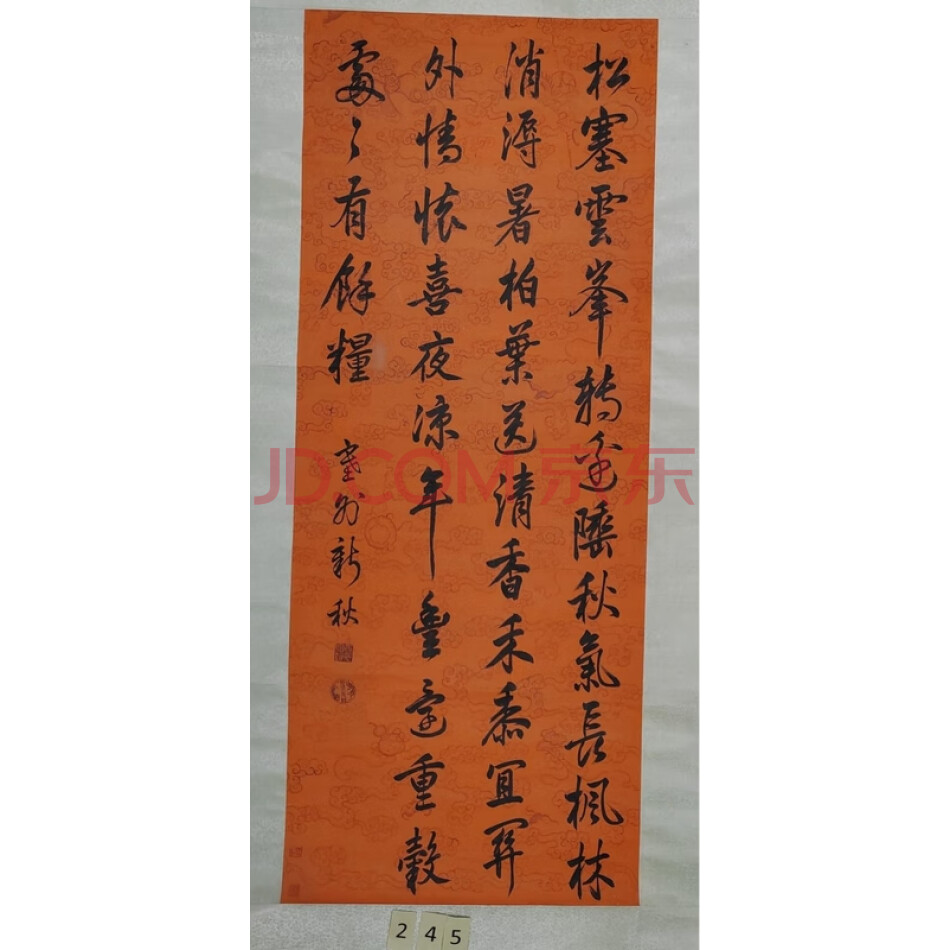 松塞雲峯轉邊陲秋氣長楓林
消溽暑柏葉送清香禾黍宜關
外情懷喜夜涼年豐重穀
處〻有餘糧
塞外新秋
JD.COM 京东
2 4 5